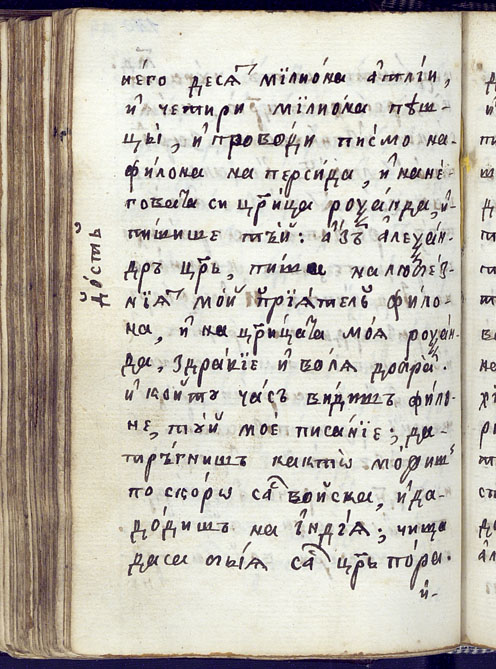 него десѧ҇ мїлиѡ́на а҆тлїи,
и҆ четири мїлиѡ́на пѣш-
цы̀, и҆ проводи писмо на-
филона на персида, и҆ на не-
говата си цр҃ица роѯа́нда, и҆-
пи́шише тъй: а҆́зъ але́ѯан-
дръ цр҃ь, пиша на любез-
нїѧ мой прїѧ́телъ фило-
на, и҆ на цр҃ицата моѧ роѯан-
да, здравїе и҆ волѧ добра̀.
и҆ ко́йту ча́съ видишъ фило-
не, ту́й моѐ писанїе; да-
тръ́гнишъ кактѡ мо́жишъ
по скорѡ са̀ войска, и҆ да-
до́дишъ на їндїѧ; чища
даса бїѧ са̀ цр҃ь по́ра.
и҆-
до́стъ